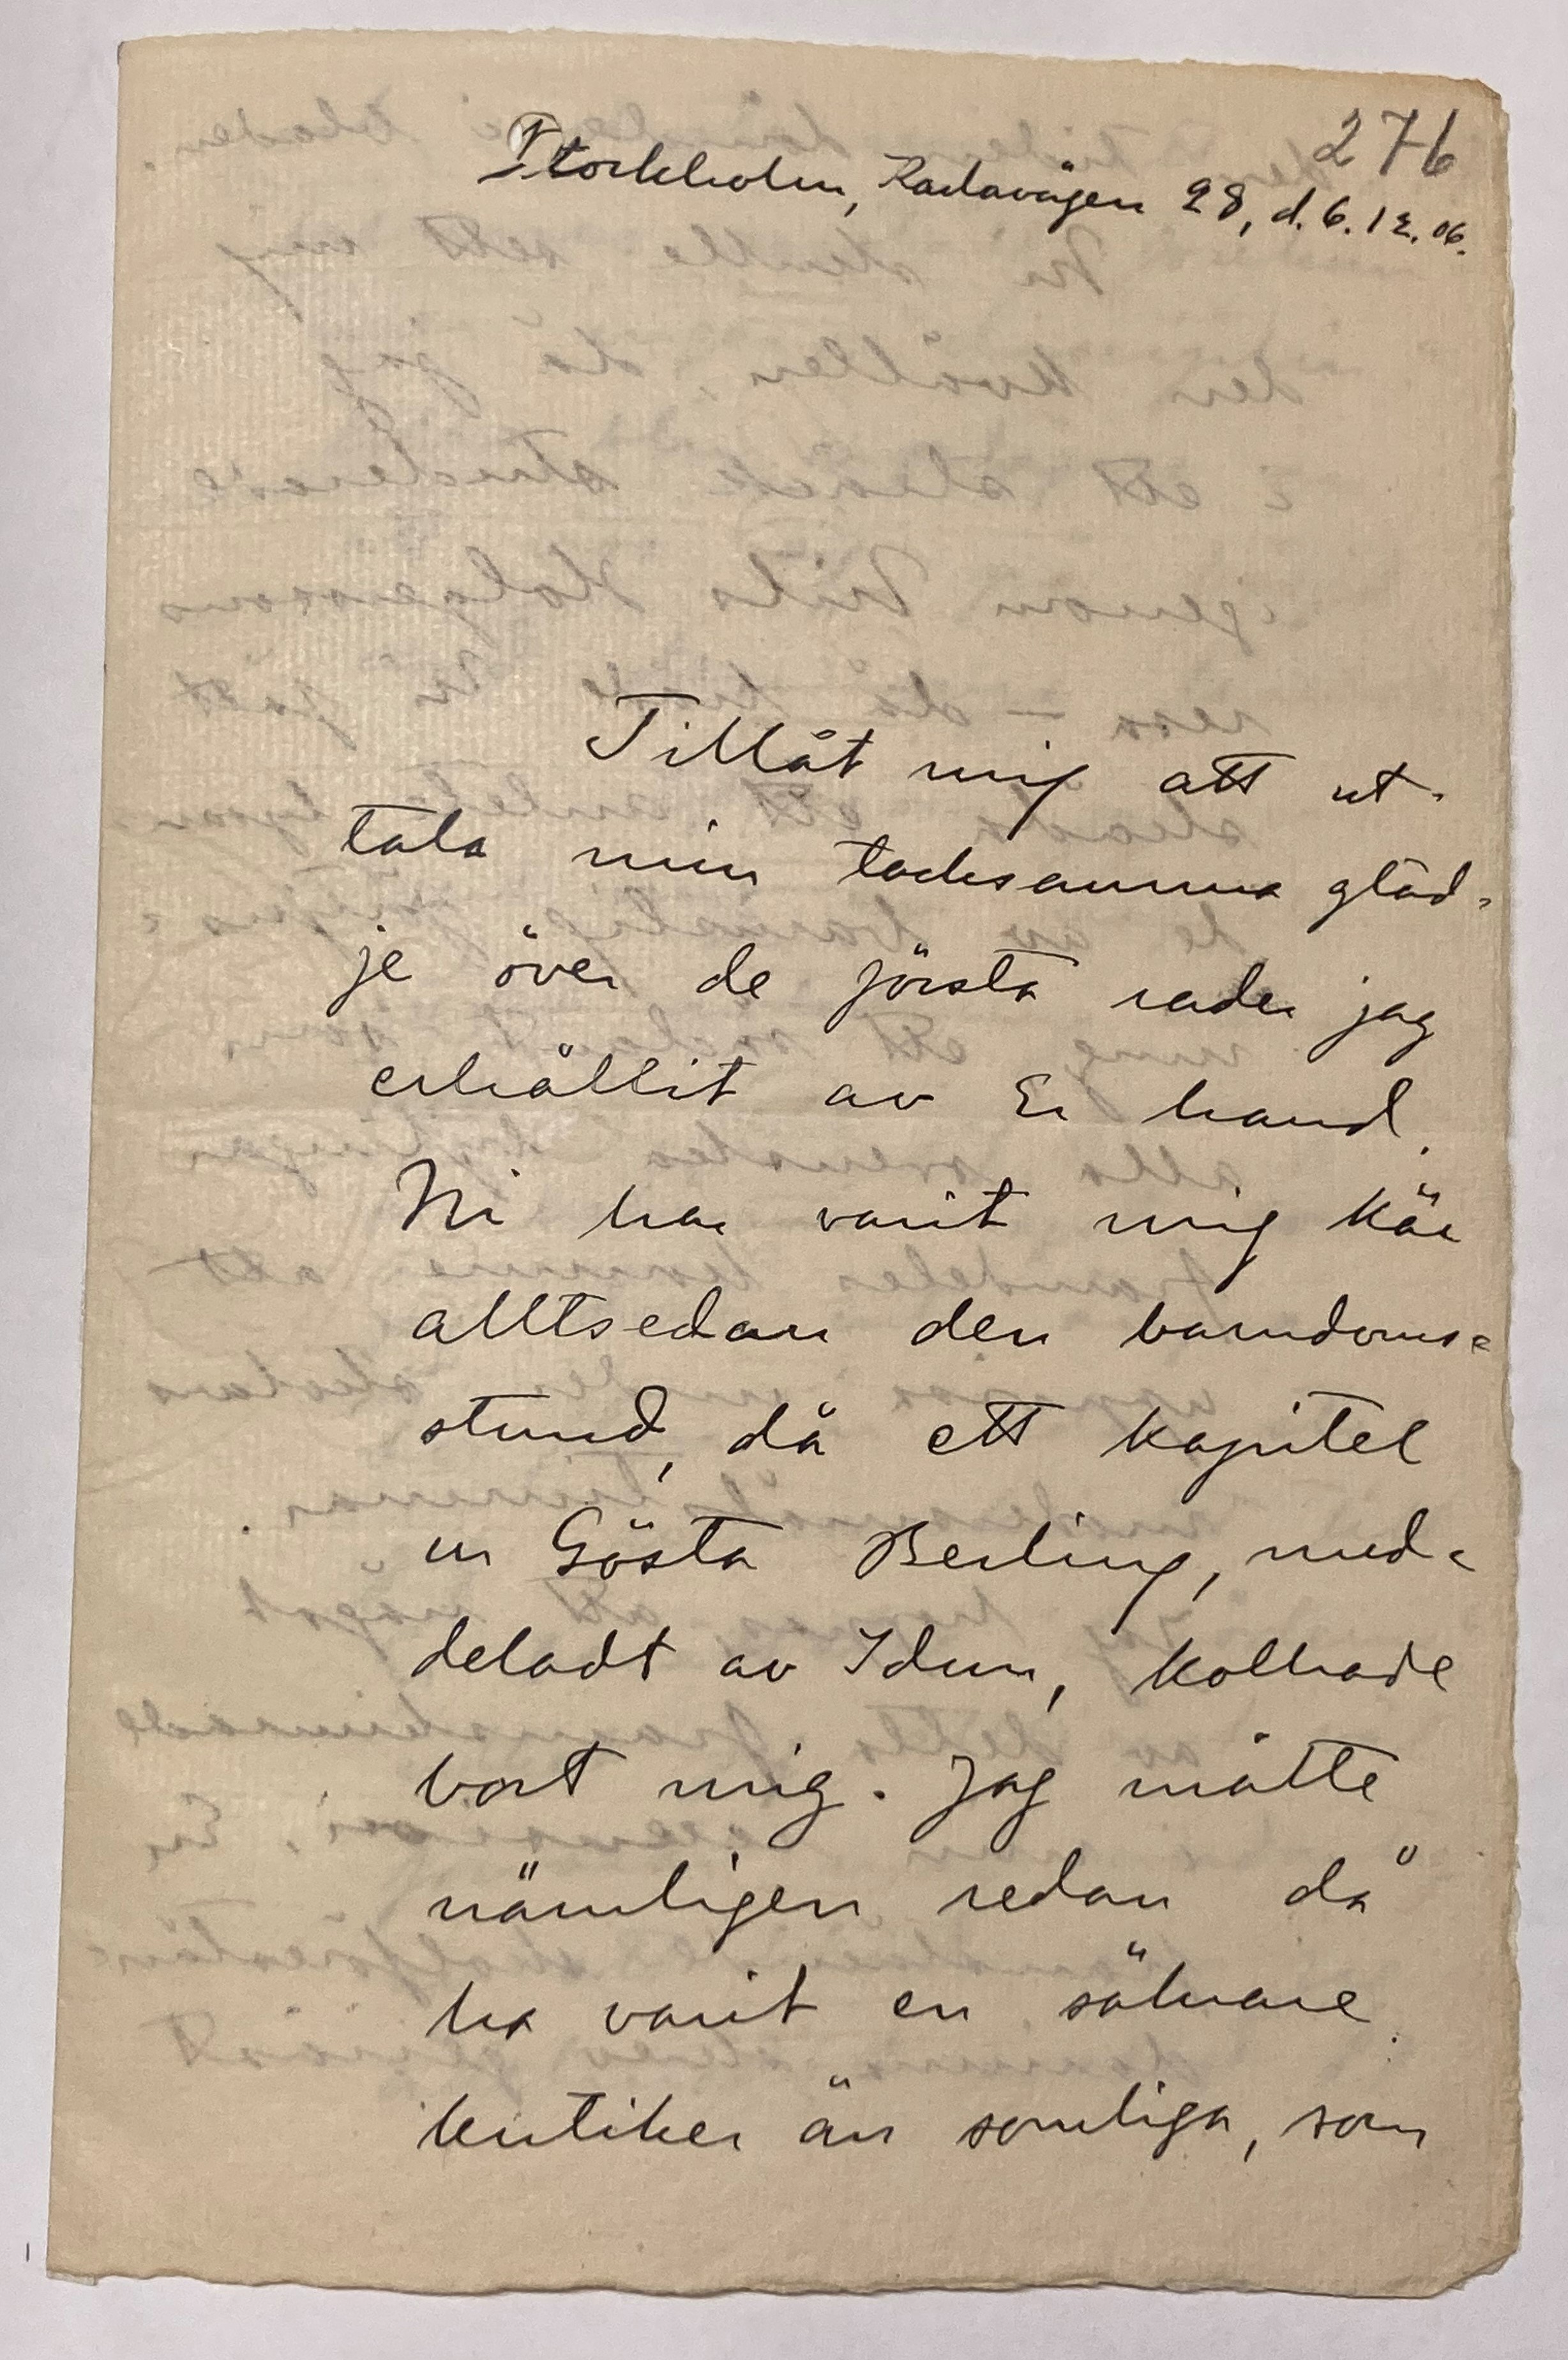 276
Stockholm, Karlavägen 28, d. 6. 12. 06.
Tillåt mig att ut-
tala min tacksamma gläd-
je över de första rader jag
erhållit av Er hand.
Ni har varit mig kär
alltsedan den barndoms-
stund, då ett kapitel
ur Gösta Berling, med-
deladt av Idun, kolhade
bort mig. Jag måtte
nämligen redan då
ha varit en säkrare
kritiker än somliga, som